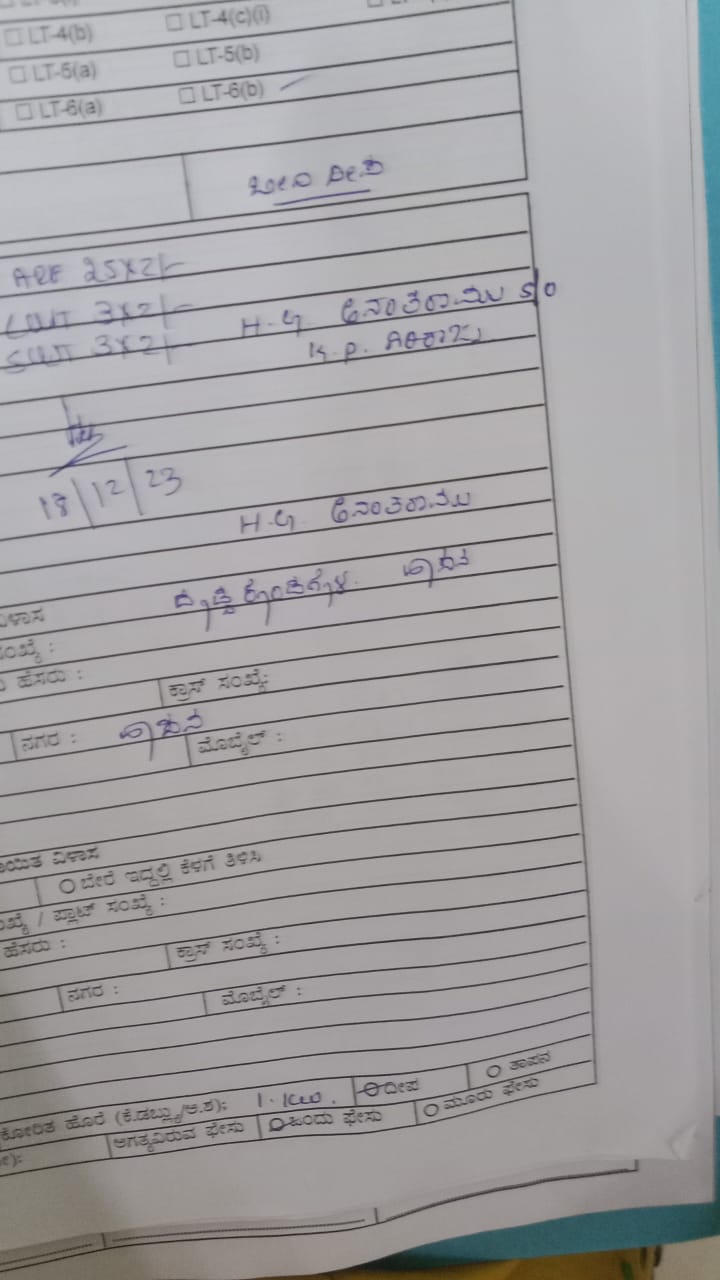 ☐ LT-4(b) ☐ LT-4(c)(i)
☐ LT-5(a) ☐ LT-5(b)
☐ LT-6(a) ☐ LT-6(b)
ಬೀದಿ ದೀಪ
ARF 25x2/-
3x2/-
3x2/- H.G. ಅನಂತರಾಮು S/O
K.P.
18/12/23
H.G. ಅನಂತರಾಮು
ವಿಳಾಸ
ಸಂಖ್ಯೆ :
ಹೆಸರು : ಕ್ರಾಸ್ ಸಂಖ್ಯೆ:
ನಗರ : ಮೊಬೈಲ್ :
ವಿಳಾಸ
ಬೇರೆ ಇದ್ದಲ್ಲಿ ಕೆಳಗೆ ತಿಳಿಸಿ
/ ಪ್ಲಾಟ್ ಸಂಖ್ಯೆ :
ಹೆಸರು : ಕ್ರಾಸ್ ಸಂಖ್ಯೆ :
ನಗರ : ಮೊಬೈಲ್ :
ಕೋರಿತ ಹೊರೆ (ಕೆ.ಡಬ್ಲ್ಯು/ಅ.ಶ): 1.KW. ದೀಪ ತಾಪನ
ಅಗತ್ಯವಿರುವ ಫೇಸು ಒಂದು ಫೇಸು ಮೂರು ಫೇಸು